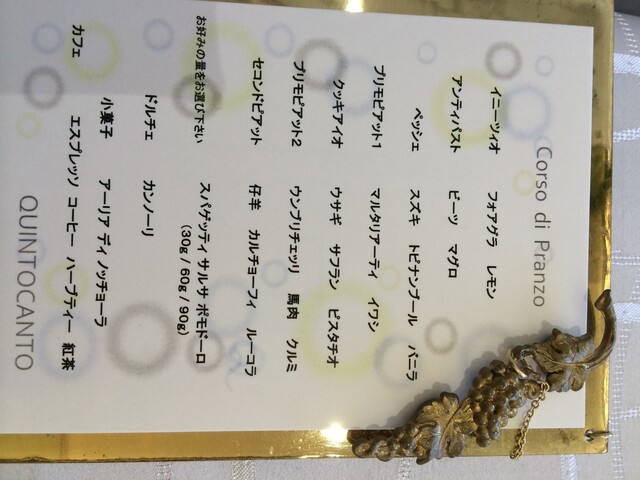 Corso di Pranzo
イニーツィオ フォアグラ レモン
アンティパスト ビーツ マグロ
ペッシェ スズキ トピナンブール バニラ
プリモピアット1 マルタリアーティ イワシ
クッキアイオ ウサギ サフラン ピスタチオ
プリモピアット2 ウンブリチェッリ 馬肉 クルミ
セコンドピアット 仔羊 カルチョーフィ ルーコラ
お好みの量をお選び下さい スパゲッティ サルサ ポモドーロ
(30g / 60g / 90g)
ドルチェ カンノーリ
小菓子 アーリア ディ ノッチョーラ
カフェ エスプレッソ コーヒー ハーブティー 紅茶
QUINTOCANTO